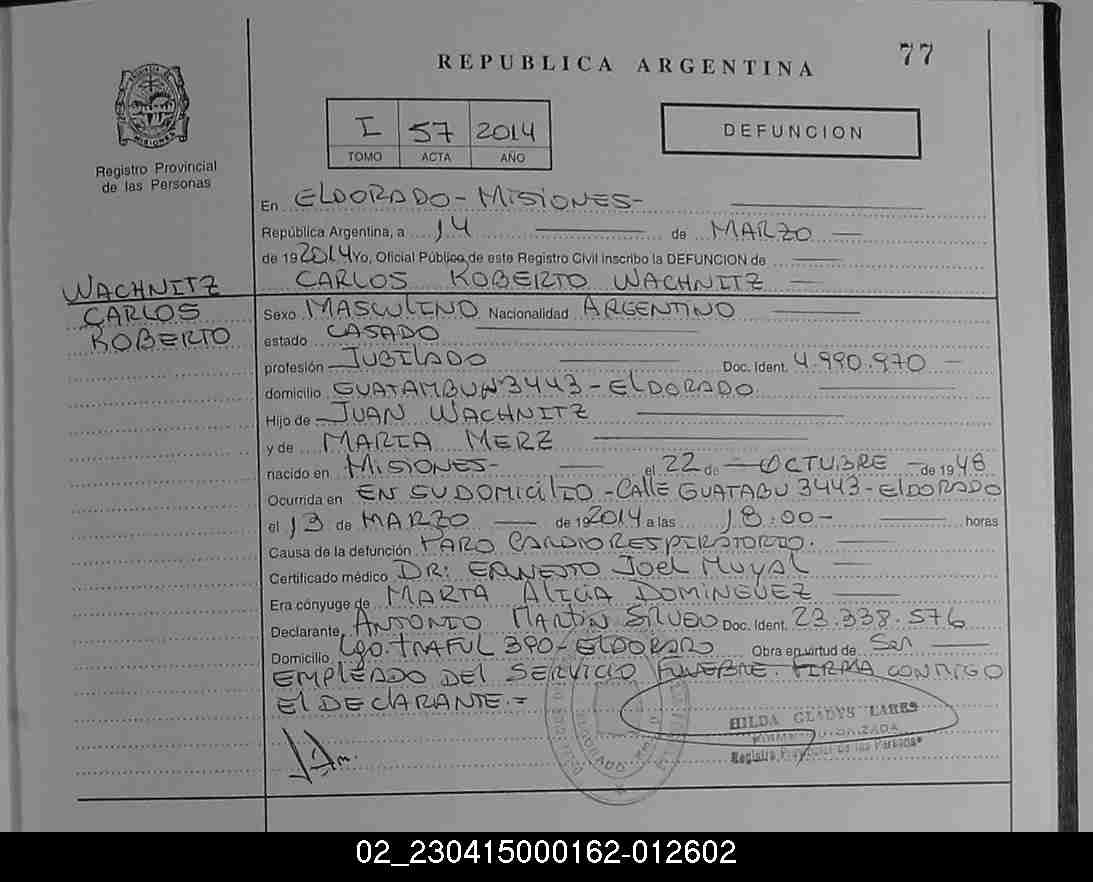 77
REPUBLICA ARGENTINA
I 57 2014
TOMO ACTA AÑO
DEFUNCION
PROVINCIA DE
MISIONES
Registro Provincial
de las Personas
En ELDORADO - MISIONES-
República Argentina, a 14 de MARZO
de 192014 Yo, Oficial Público de este Registro Civil inscribo la DEFUNCION de
CARLOS ROBERTO WACHNITZ
WACHNITZ
CARLOS
ROBERTO
Sexo MASCULINO Nacionalidad ARGENTINO
estado CASADO
profesión JUBILADO Doc. Ident. 4.990.970
domicilio GUATAMBUN 3443 - ELDORADO
Hijo de JUAN WACHNITZ
y de MARIA MERZ
nacido en MISIONES- el 22 de OCTUBRE de 1948
Ocurrida en EN SU DOMICILIO - CALLE GUATABU 3443 - ELDORADO
el 13 de MARZO de 192014 a las 18:00- horas
Causa de la defunción PARO CARDIORESPIRATORIO.
Certificado médico DR: ERNESTO JOEL MUYAL
Era cónyuge de MARTA ALICIA DOMINGUEZ
Declarante ANTONIO MARTIN Doc. Ident. 23.338.576
Domicilio Lgo. TRAFUL 390 - ELDORADO Obra en virtud de SER
EMPLEADO DEL SERVICIO FUNEBRE. FIRMA CONMIGO
El DECLARANTE.=
HILDA GLADYS LARES
Registro Provincial de las Personas
02_230415000162-012602